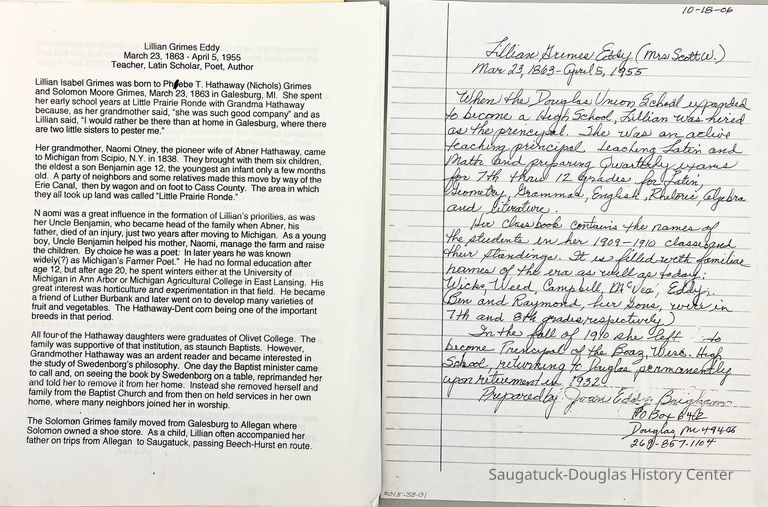 Lillian Grimes Eddy
March 23, 1863 - April 5, 1955
Teacher, Latin Scholar, Poet, Author
Lillian Isabel Grimes was born to Phebe T. Hathaway (Nichols) Grimes
and Solomon Moore Grimes, March 23, 1863 in Galesburg, MI. She spent
her early school years at Little Prairie Ronde with Grandma Hathaway
because, as her grandmother said, "she was such good company" and as
Lillian said, "I would rather be there than at home in Galesburg, where there
are two little sisters to pester me."
Her grandmother, Naomi Olney, the pioneer wife of Abner Hathaway, came
to Michigan from Scipio, N.Y. in 1838. They brought with them six children,
the eldest a son Benjamin age 12, the youngest an infant only a few months
old. A party of neighbors and some relatives made this move by way of the
Erie Canal, then by wagon and on foot to Cass County. The area in which
they all took up land was called "Little Prairie Ronde."
Naomi was a great influence in the formation of Lillian's priorities, as was
her Uncle Benjamin, who became head of the family when Abner, his
father, died of an injury, just two years after moving to Michigan. As a young
boy, Uncle Benjamin helped his mother, Naomi, manage the farm and raise
the children. By choice he was a poet. In later years he was known
widely(?) as Michigan's Farmer Poet." He had no formal education after
age 12, but after age 20, he spent winters either at the University of
Michigan in Ann Arbor or Michigan Agricultural College in East Lansing. His
great interest was horticulture and experimentation in that field. He became
a friend of Luther Burbank and later went on to develop many varieties of
fruit and vegetables. The Hathaway-Dent corn being one of the important
breeds in that period.
All four of the Hathaway daughters were graduates of Olivet College. The
family was supportive of that institution, as staunch Baptists. However,
Grandmother Hathaway was an ardent reader and became interested in
the study of Swedenborg's philosophy. One day the Baptist minister came
to call and, on seeing the book by Swedenborg on a table, reprimanded her
and told her to remove it from her home. Instead she removed herself and
family from the Baptist Church and from then on held services in her own
home, where many neighbors joined her in worship.
The Solomon Grimes family moved from Galesburg to Allegan where
Solomon owned a shoe store. As a child, Lillian often accompanied her
father on trips from Allegan to Saugatuck, passing Beech-Hurst en route.
10-18-06
Lillian Grimes Eddy (Mrs Scott W.)
Mar 23, 1863 - April 5, 1955
When the Douglas Union School expanded
to become a High School, Lillian was hired
as the principal. She was an active
teaching principal teaching Latin and
Math and preparing Quarterly exams
for 7th thru 12 grades for Latin,
Geometry, Grammar, English, Rhetoric, Algebra
and literature.
Her Classbook contains the names of
the students in her 1909-1910 class and
their standings. It is filled with familiar
names of the era as well as today:
Wicks, Weed, Campbell, McVea, Eddy,
Ben and Raymond, her sons, were in
7th and 8th grades, respectively)
In the fall of 1910 she left to
become Principal of the Boaz, Wisc. High
School, returning to Douglas permanently
upon retirement in 1932.
Prepared by Joan Eddy Brigham
PO Box 646
Douglas, MI 49406
269-857-1104
2015.33.01
Saugatuck-Douglas History Center